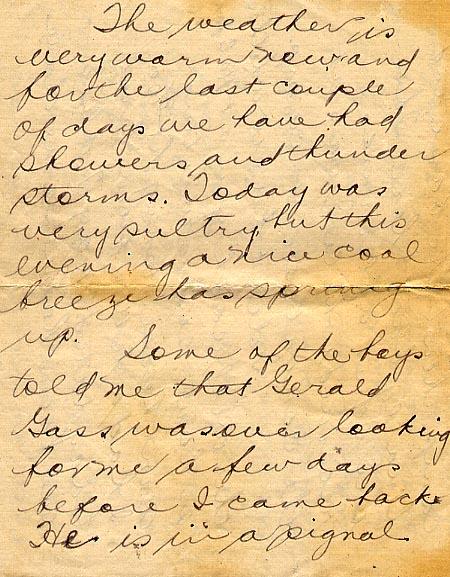 The weather is
very warm now and
for the last couple
of days we have had
showers and thunder
storms. Today was
very sultry but this
evening a nice cool
breeze has sprung
up.
Some of the boys
told me that Gerald
Gass was over looking
for me a few days
before I came back.
He is in a signal